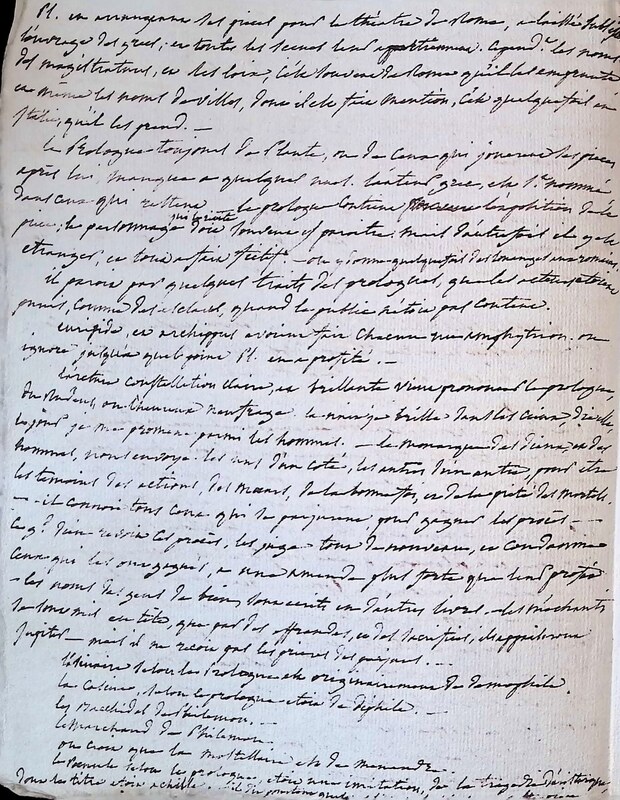 Pl. en arrangeant les pieces pour le théatre de Rome, a laissé subsister
l'ouvrage des grecs; et toutes les scenes leur appartiennent. Cepend.t les noms
des magistratures, et les loix, c'est souvent de Rome qu'il les emprunte
et même les noms de villes, dont il est fait mention, c'est quelquefois en
Italie, qu'il les prend. —
le Prologue toujours de Plaute, ou de ceux qui jouerent les pieces
après lui, manque a quelques unes. l'auteur grec, est l.t nommé
dans ceux qui restent. le prologue contient l'exposition de la
piece; le personnage qui le récite doit souvent y paroitre: mais d'autrefois il y est
etranger, et tout a fait fictif. — on y donne quelquefois des louanges aux romains.
il paroit par quelques traits des prologues, que les acteurs etoient
punis, comme des esclaves, quand le public n'étoit pas content.
euripide, et archippus avoient fait chacun un amphytrion. on
ignore jusqu'a quel point Pl. en a profité. —
l'arcture constellation claire, et brillante vient prononcer le prologue,
du Rudens, ou l'heureux naufrage. la nuit je brille dans les cieux, dit-elle,
le jour je me promene parmi les hommes. — le monarque des dieux, et des
hommes, nous envoye les uns d'un coté, les autres d'un autre, pour etre
les temoins des actions, des mœurs, de la bonne foi, et de la pieté des mortels.
— il connoit tous ceux qui se parjurent pour gagner les procès — —
Ce g.d dieu revoit ces procès, les juge tous de nouveau, et condamne
ceux qui les ont gagnés, a une amende plus forte que leur profit
— les noms des gens de bien, sont ecrits en d'autres livres. — les méchants
se sont mis en tête, que par des offrandes, et des sacrifices, ils appaiseront
Jupiter — mais il ne recoit pas les prieres des parjures. —
l'asinaire selon le Prologue est originairement de Demophile.
la Casine, selon le prologue etoit de Diphile. —
les Bacchides de Philemon. —
le Marchand de Philemon
on croit que la Mostellaire est de Menandre.
le Poenule selon le prologue, etoit une imitation, de la tragedie d'aristarque,
dont le titre etoit achille.